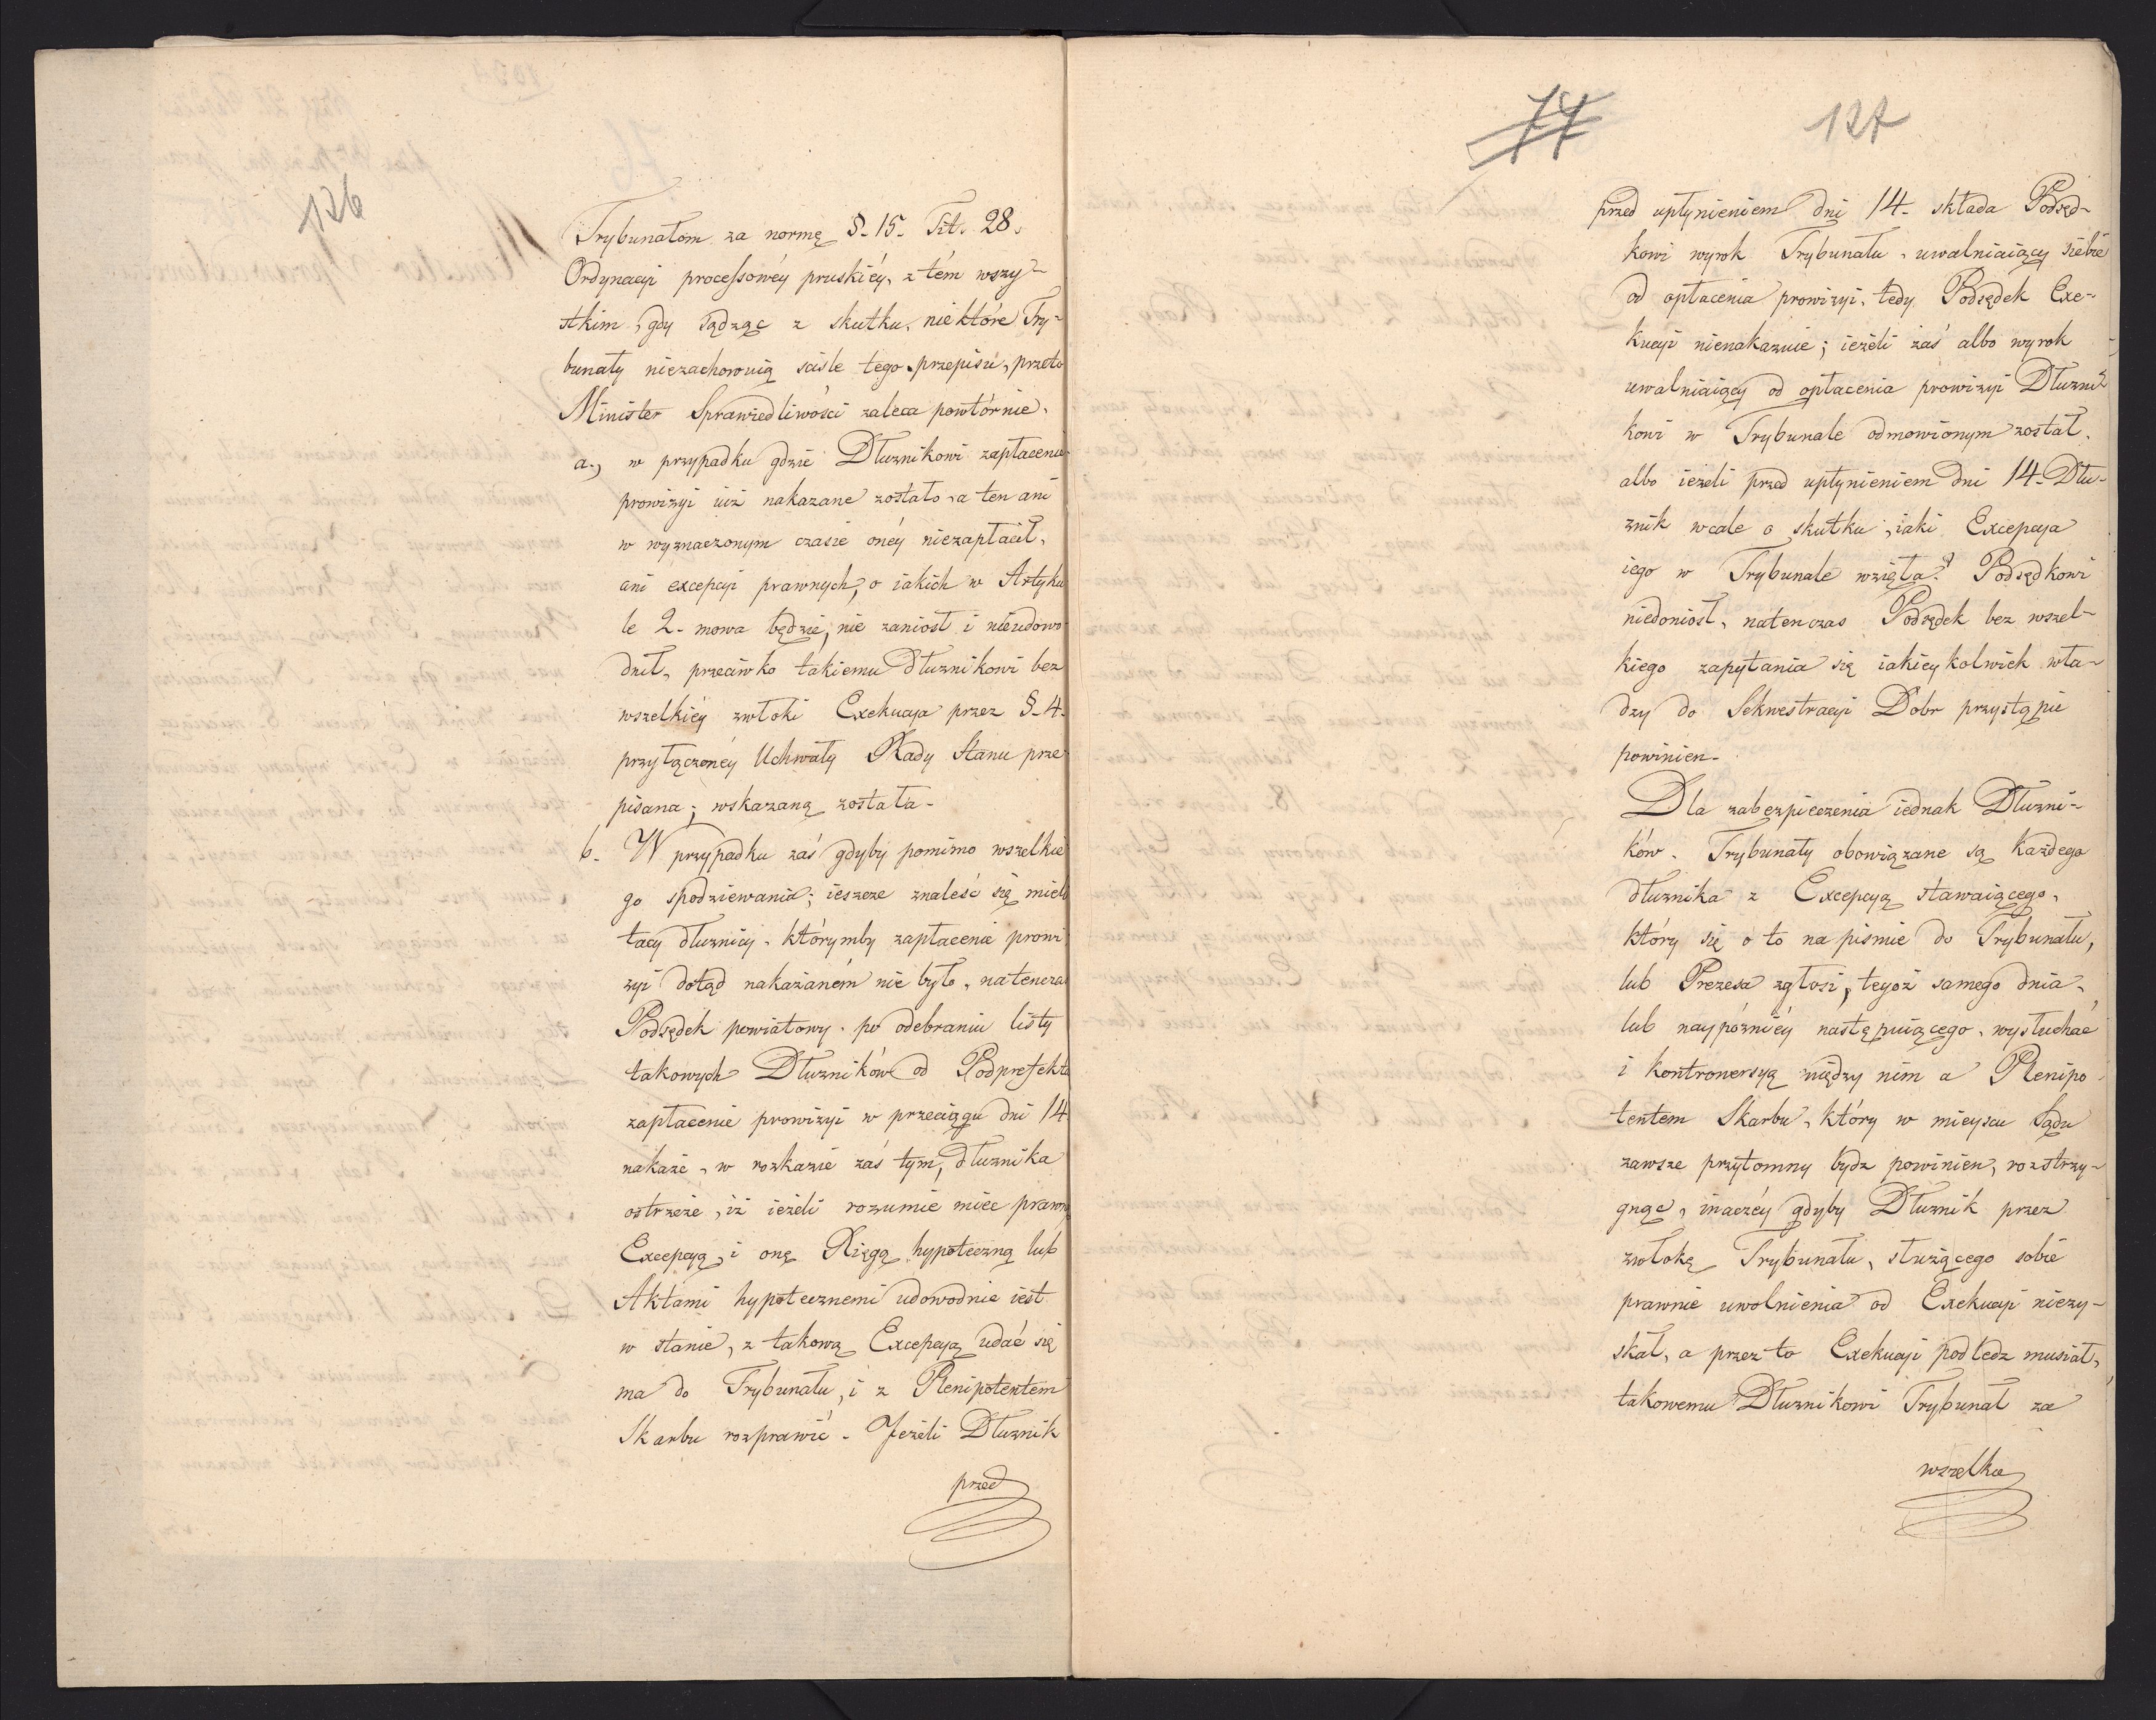 126
Trybunałom za normę §. 15. Tit. 28.
Ordynacyi processowéy pruskiéy, z tém wszy-
stkim, gdy sądząc z skutku, niektóre Try-
bunały niezachowuią sciśle tego przepisu, przeto
Minister Sprawiedliwości zaleca powtórnie.
a., w przypadku gdzie Dłuznikowi zapłacenie
prowizyi iuż nakazane zostało, a ten ani
w wyznaczonym czasie onéy niezapłacił,
ani excepcyi prawnych, o iakich w Artyku
le 2. mowa będzie, nie zaniósł i nieudowo
dnił, przeciwko takiemu dłuznikowi bez
wszelkiéy zwłoki Exekucya przez §. 4.
przyłączonéy Uchwały Rady Stanu prze
pisana; wskazaną została.
b. W przypadku zaś gdyby pomimo wszelkie
go spodziewania; ieszcze znaleść się mieli
tacy dłuznicy, którymby zapłacenie prowi
zyi dotąd nakazaném nie było, natenczas
Podsędek powiatowy, po odebraniu listy
takowych Dłuzników od Podprefekta
zapłacenie prowizyi w przeciągu dni 14
nakaże, w rozkazie zaś tym, dłuznika
ostrzeże, iż ieżeli rozumie mieć prawną
Excepcyą, i onę Xięgą hypoteczną lub
Aktami hypotecznemi udowodnić iest
w stanie, z takową Excepcyą udać się
ma do Trybunału, i z Plenipotentem
Skarbu rozprawić. Jeżeli Dłuznik
przed
77
127
przed upłynieniem dni 14. składa Podsęd-
kowi wyrok Trybunału, uwalniaiący siebie
od opłacenia prowizyi, tedy Podsędek Exe-
kucyi nienakazuie; ieżeli zaś albo wyrok
uwalniaiący od opłacenia prowizyi Dłuzni
kowi w Trybunale odmowionym został,
albo ieżeli przed upłynieniem dni 14. Dłu-
znik wcale o skutku, iaki Excepcya
iego w Trybunale wzięła? Podsędkowi
niedoniósł, natenczas Podsędek bez wszel-
kiego zapytania się iakieykolwiek wła-
dzy do Sekwestracyi Dóbr przystąpić
powinien.
Dla zabezpieczenia iednak Dłuzni-
ków. Trybunały obowiązane są każdego
dłuznika z Excepcyą stawaiącego,
który się o to na pismie do Trybunału,
lub Prezesa zgłosi, tegoż samego dnia,
lub naypózniéy następuiącego, wysłuchać
i kontrowersyą między nim a Plenipo
tentem Skarbu, który w mieyscu Sądu
zawsze przytomny bydz powinien, rozstrzy-
gnąć, inaczéy gdyby Dłuznik przez
zwłokę Trybunału, służącego sobie
prawnie uwolnienia od Exekucyi niezy-
skał, a przez to Exekucyi podledz musiał,
takowemu Dłuznikowi Trybunał za
wszelkie